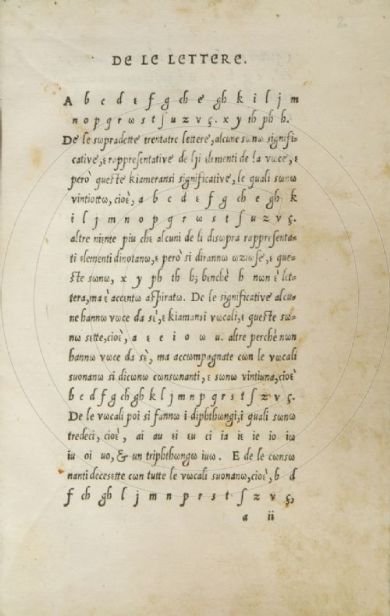 2
DE LE LETTERE.
A b c d ε f g ch e gh k i l j m
n o p q r ω s t ſ u z v ç. x y th ph h.
De le sωpradette trentatre lettere, alcune sωnω signifi
cative, ε rappresentative de lji εlementi de la vωce, ε
però queste kiameransi significative, le quali sωnω
vintiottω, cioὲ, a b c d ε f g ch e gh k
i l j m n o p q r ω s t ſ u z v ç.
altre niεnte piu che alcuni de li disωpra rappresenta-
ti εlementi dinotanω, ε però si diranno ωziωse, ε que-
ste sωnω, x y ph th h; benchὲ h nωn ὲ lεt-
tera, ma ὲ accentω aspiratω. De le significative alcu-
ne hannω vωce da sὶ, ε kiamansi vωcali, ε queste sω-
nω sette, cioὲ, a ε e i o ω u. altre perchὲ nωn
hannω vωce da sὶ, ma accωmpagnate cωn le vωcali
suonanω si dicωnω cωnsωnanti, ε sωnω vintiuna, cioὲ
b c d f g ch gh k l j m n p q r s t ſ z v ç.
De le vωcali poi si fannω i diphthωngi, i quali sωnω
tredeci, cioὲ, ai au εi εu ci ia iε ie io iω
iu oi uo, & un triphthωngω iuω. E de le cωnsω
nanti decesette cωn tutte le vωcali suonanω, cioὲ, b d
f ch gh l j m n p r s t ſ z v ç,
a ii